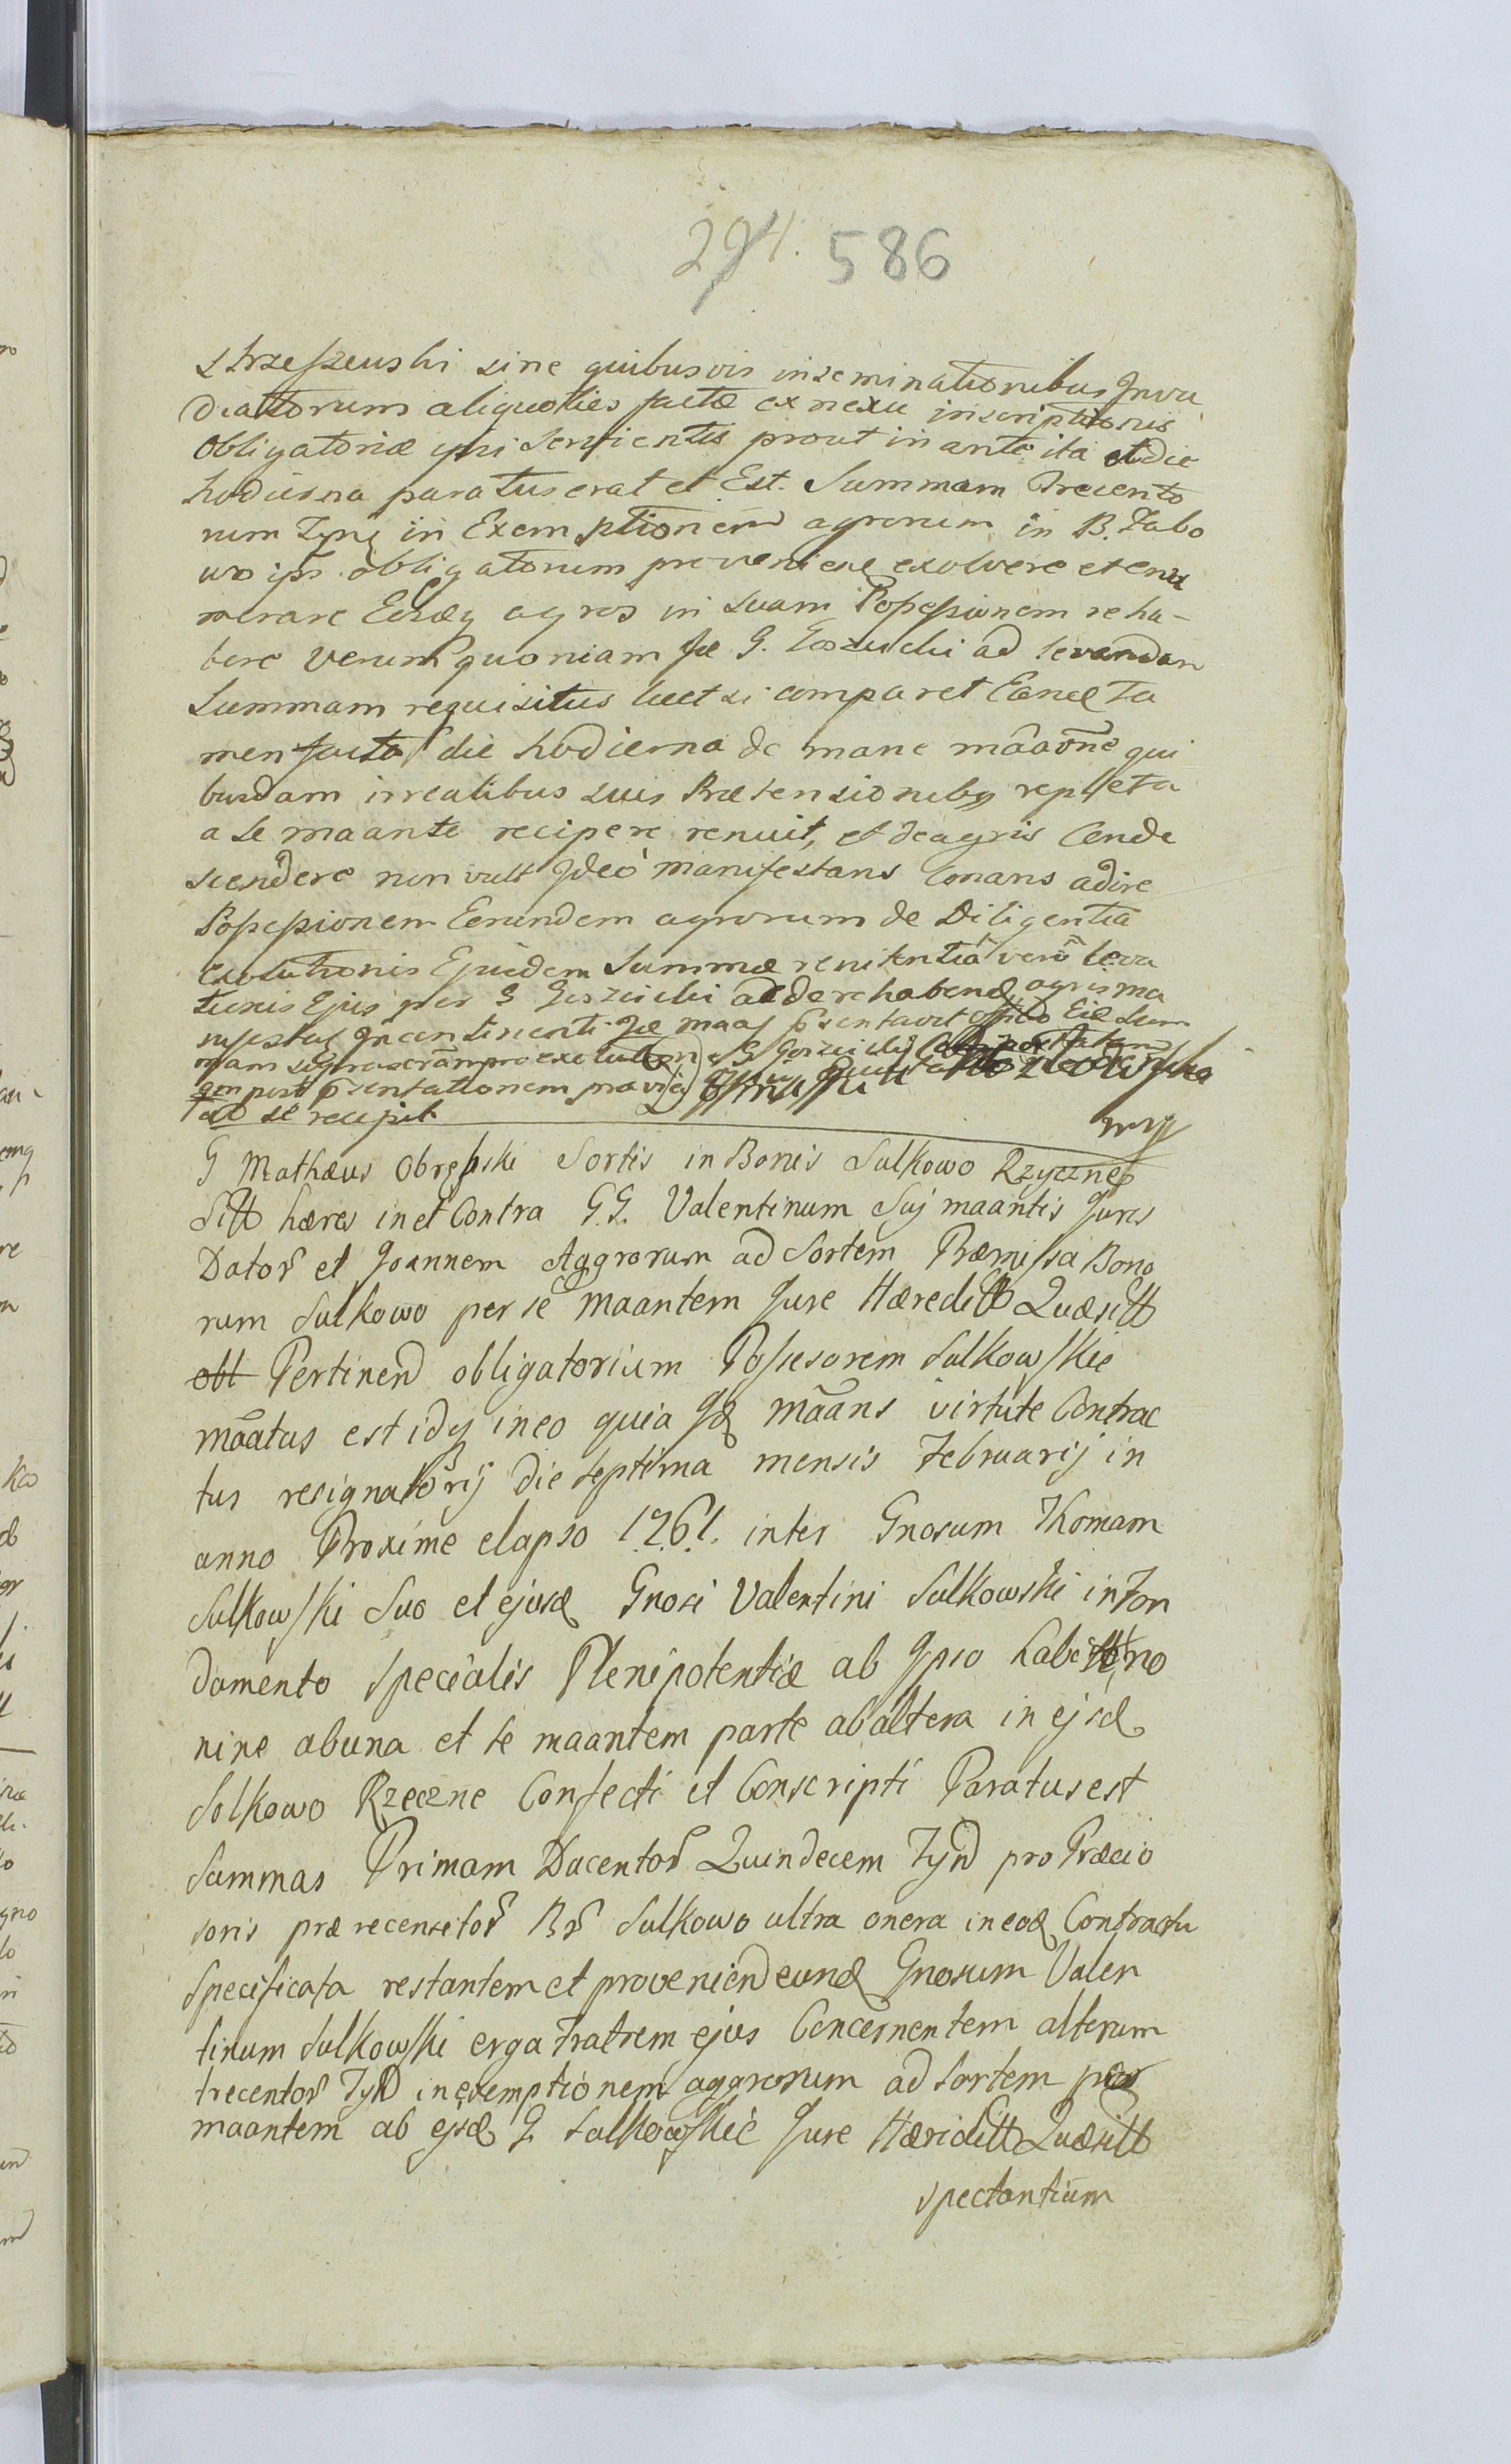 294. 586
Strzeszewski sine quibusvis inseminationibus Inva
diattorum aliquoties factæ ex nexu inscriptionis
Obligatoriæ ipsi servientis prout in ante ita et die
hodierna paratus erat et Est. Summam Trecento
rum in Exemptionem agrorum in B. Zabo
wo obligatorum proveniend exolvere et enu
merare Eosdq agros in suam Possessionem reha-
bere Verum quoniam G. ad levandam
Summam requisitus licet si comparet Eandē Ta
men facta die hodierna de mane māaōne qui
busdam irrealibus suis Prætensionibq repleta
a se maante recipere renuit, et de agris Conde
scendere non vult Ideò manifestans Conans adire
Possessionem Eorundem agrorum de Diligentia
Exolutionis Ejusdem Summæ renitentiâ verò leva
tionis Ejus per G ad de rehabend agris ma
nifestat Incontinenti Officio Sum
mam
post pōsentationem
ad se recipit
mp
G Mathæus Obrębski Sortis in Bonis Sulkowo Rzyczne
Sitt hæres in et Contra G.G. Valentinum Suj maantis Juris
Dator et Joannem Aggrorum ad Sortem Præmissa Bono
rum Sulkowo per se maantem Jure Hæreditt Quæsitt
obl Pertinend obligatorium Possesorem Sulkowskie
māatus est idq in eo quia Id māans virtute Contrac
tus resignatorij die Septima mensis Februarij in
anno Proxime elapso 1761. inter Gnosum Thomam
Sulkowski Suo et ejusd Gnosi Valentini Sulkowski in Fon
damento Specialis Plenipotentiæ ab Ipso habitt no
nine ab una et se maantem parte ab altera in ejsd
Solkowo Rzeczne Confecti et Conscripti Paratus est
Summas Primam Ducentor Quindecem Tynd pro Præcio
soris prærecensitor Br Sulkowo ultra onera in eod Contractu
Specificata restantem et proveniend eund Gnosum Valen
tinum Sulkowski erga Fratrem ejus Concernentem alteram
trecentor Tyn in exemptionem aggrorum ad Sortem per
maantem ab ejsd G. Sulkowskie Jure Hæriditt Quæsitt
spectantium